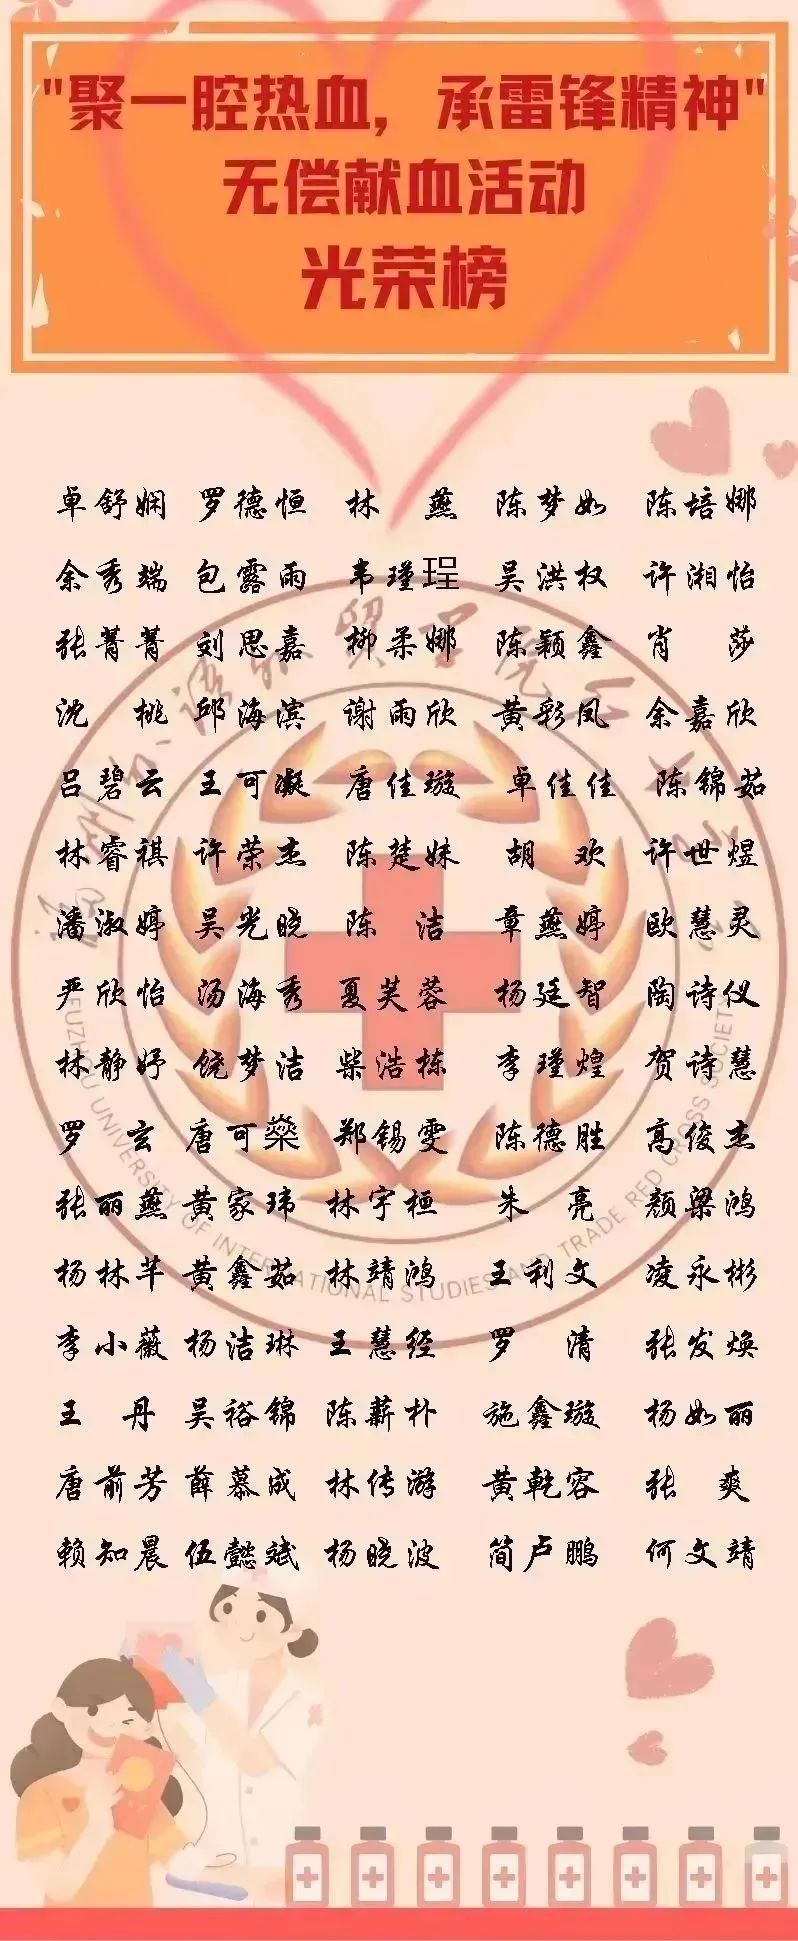 "聚一腔热血，承雷锋精神"
无偿献血活动
光荣榜
卓舒娴 罗德恒 林 燕 陈梦如 陈培娜
余秀端 包露雨 韦瑾珵 吴洪权 许湘怡
张菁菁 刘思嘉 柳柔娜 陈颖鑫 肖 莎
沈 桃 邱海滨 谢雨欣 黄彩凤 余嘉欣
吕碧云 王可凝 唐佳璇 卓佳佳 陈锦茹
林睿祺 许荣杰 陈楚妹 胡 欢 许世煜
潘淑婷 吴光晓 陈 洁 章燕婷 欧慧灵
严欣怡 汤海秀 夏芙蓉 杨廷智 陶诗仪
林静妤 饶梦洁 柴浩栋 李瑾煌 贺诗慧
罗 玄 唐可燊 郑锡雯 陈德胜 高俊杰
张丽燕 黄家玮 林宇桓 朱 亮 颜梁鸿
杨林芊 黄鑫茹 林靖鸿 王利文 凌永彬
李小薇 杨洁琳 王慧经 罗 清 张发焕
王 丹 吴裕锦 陈薪朴 施鑫璇 杨如丽
唐前芳 薛慕成 林传游 黄乾容 张 爽
赖知晨 伍懿斌 杨晓波 简卢鹏 何文靖
FUZHOU UNIVERSITY OF INTERNATIONAL STUDIES AND TRADE RED CROSS SOCIETY